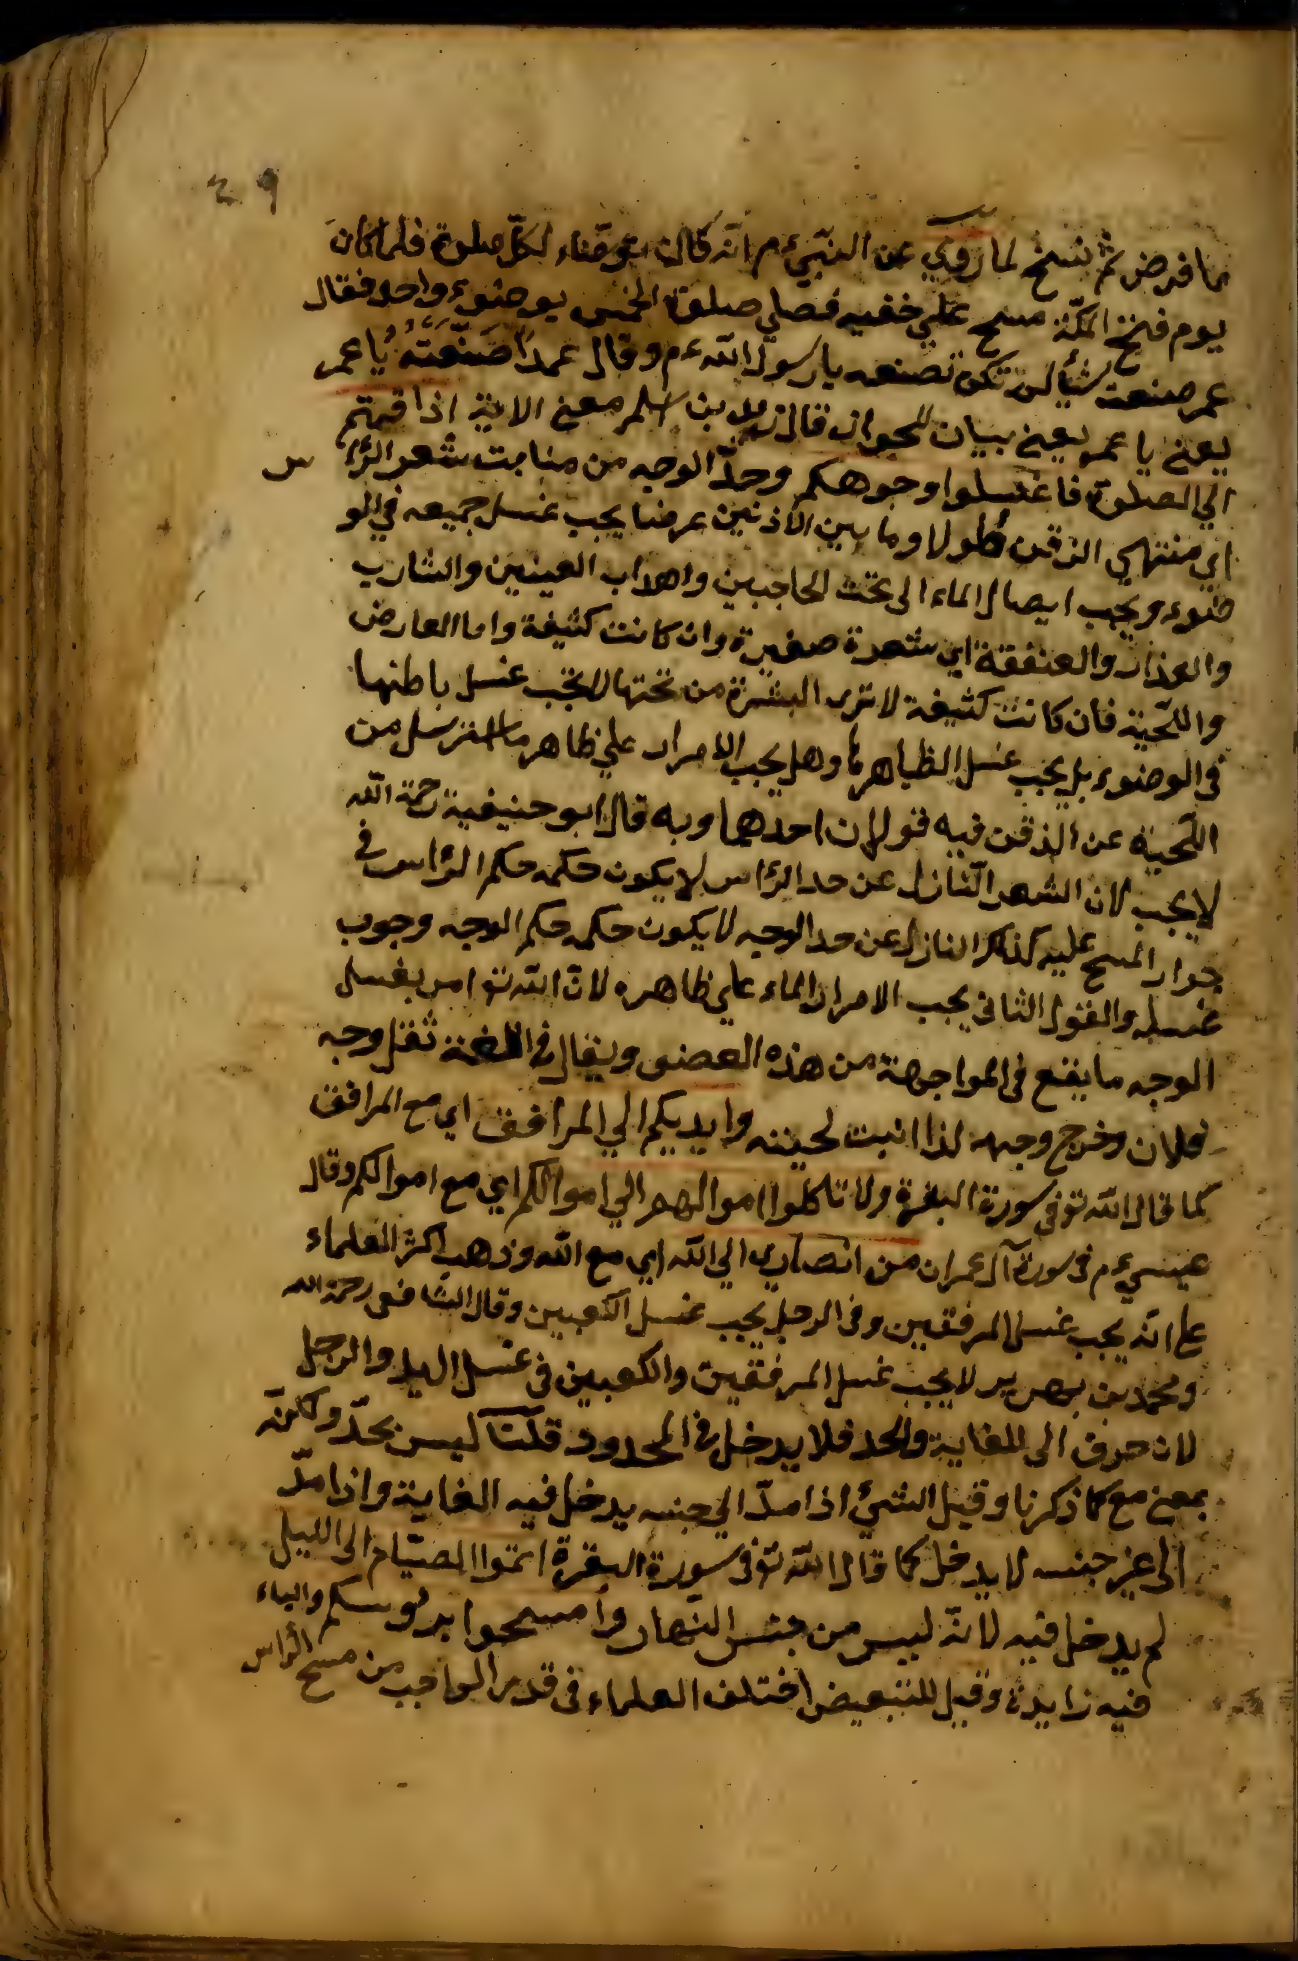 ٤٩
ما فرض ثم نسخ لما روي عن النبي ءم انّه كان يتوضّاء لكلّ صلوة فلما كان
يوم فتح المكّة مسح علي خفيه فصلي صلوة الخمس بوضوء واحد فقال
عمر صنعت شيأ لم تكن تصنعه يا رسول الله ءم وقال عمداً صَنَعتُهُ يا عمر
يعني يا عمر يعني بيان للجواز قال زيد بن اسلم معني الاية اذا قمتم
الي الصلوة فاغسلوا وجوهكم وحدّ الوجه من منابت شعر الرّاس
اي منتهي الذقن طولا وما بين الاذنين عرضا يجب غسل جميعه في الو
ضوء ويجب ايصال الماء الى تحت الحاجبين واهداب العينين والشارب
والعذار والعنفقة اي شعرة صغيرة وان كانت كثيفة واما العارض
واللّحية فان كانت كثيفة لا ترى البشرة من تحتها لا يجب غسل باطنها
في الوضوء بل يجب غسل الظاهرها وهل يجب الامرار علي ظاهر ما استرسل من
اللّحية عن الذقن فيه قولان احدهما وبه قال ابو حنيفية رحمة الله
لا يجب لان الشعر النّازل عن حد الرّاس لا يكون حكمه حكم الرّاس في
جواز المسح عليه كذلك النازل عن حد الوجه لا يكون حكمه حكم الوجه وجوب
غسله والقول الثاني يجب الامرار الماء علي ظاهره لانّ الله تو امر بغسل
الوجه ما يقع في المواجهة من هذه العضو ويقال في اللغة ثقل وجه
فلان وخرج وجهه لذا انبت لحيته وايديكم الي المرافق اي مع المرافق
كما قال الله تو في سورة البقرة ولا تاكلوا اموالهم الي اموالكم اي مع اموالكم وقال
عيسي ءم في سورة آل عمران من انصاري الي الله اي مع الله وذهب اكثر العلماء
علي انّه يجب غسل المرفقين وفي الرجل يجب غسل الكعبين وقال الشافعي رحمة الله
ومحمد بن جرير لا يجب غسل المرفقين والكعبين في غسل اليد والرجل
لان حرف الى للغاية والحد فلا يدخل في المحدود قلنا ليس بحدّ ولكنّه
بمعني مع كما ذكرنا وقيل الشيء اذا مدّ الي جنسه يدخل فيه الغاية واذا مدّ
الى غير جنسه لا يدخل كما قال الله تو في سورة البقرة اتمّوا الصيّام الى الليل
لم يدخل فيه لانّه ليس من جنس النّهار وامسحوا برئوسكم والباء
فيه زايدة وقيل للتبعيض اختلف العلماء في قدر الواجب من مسح الرّاس